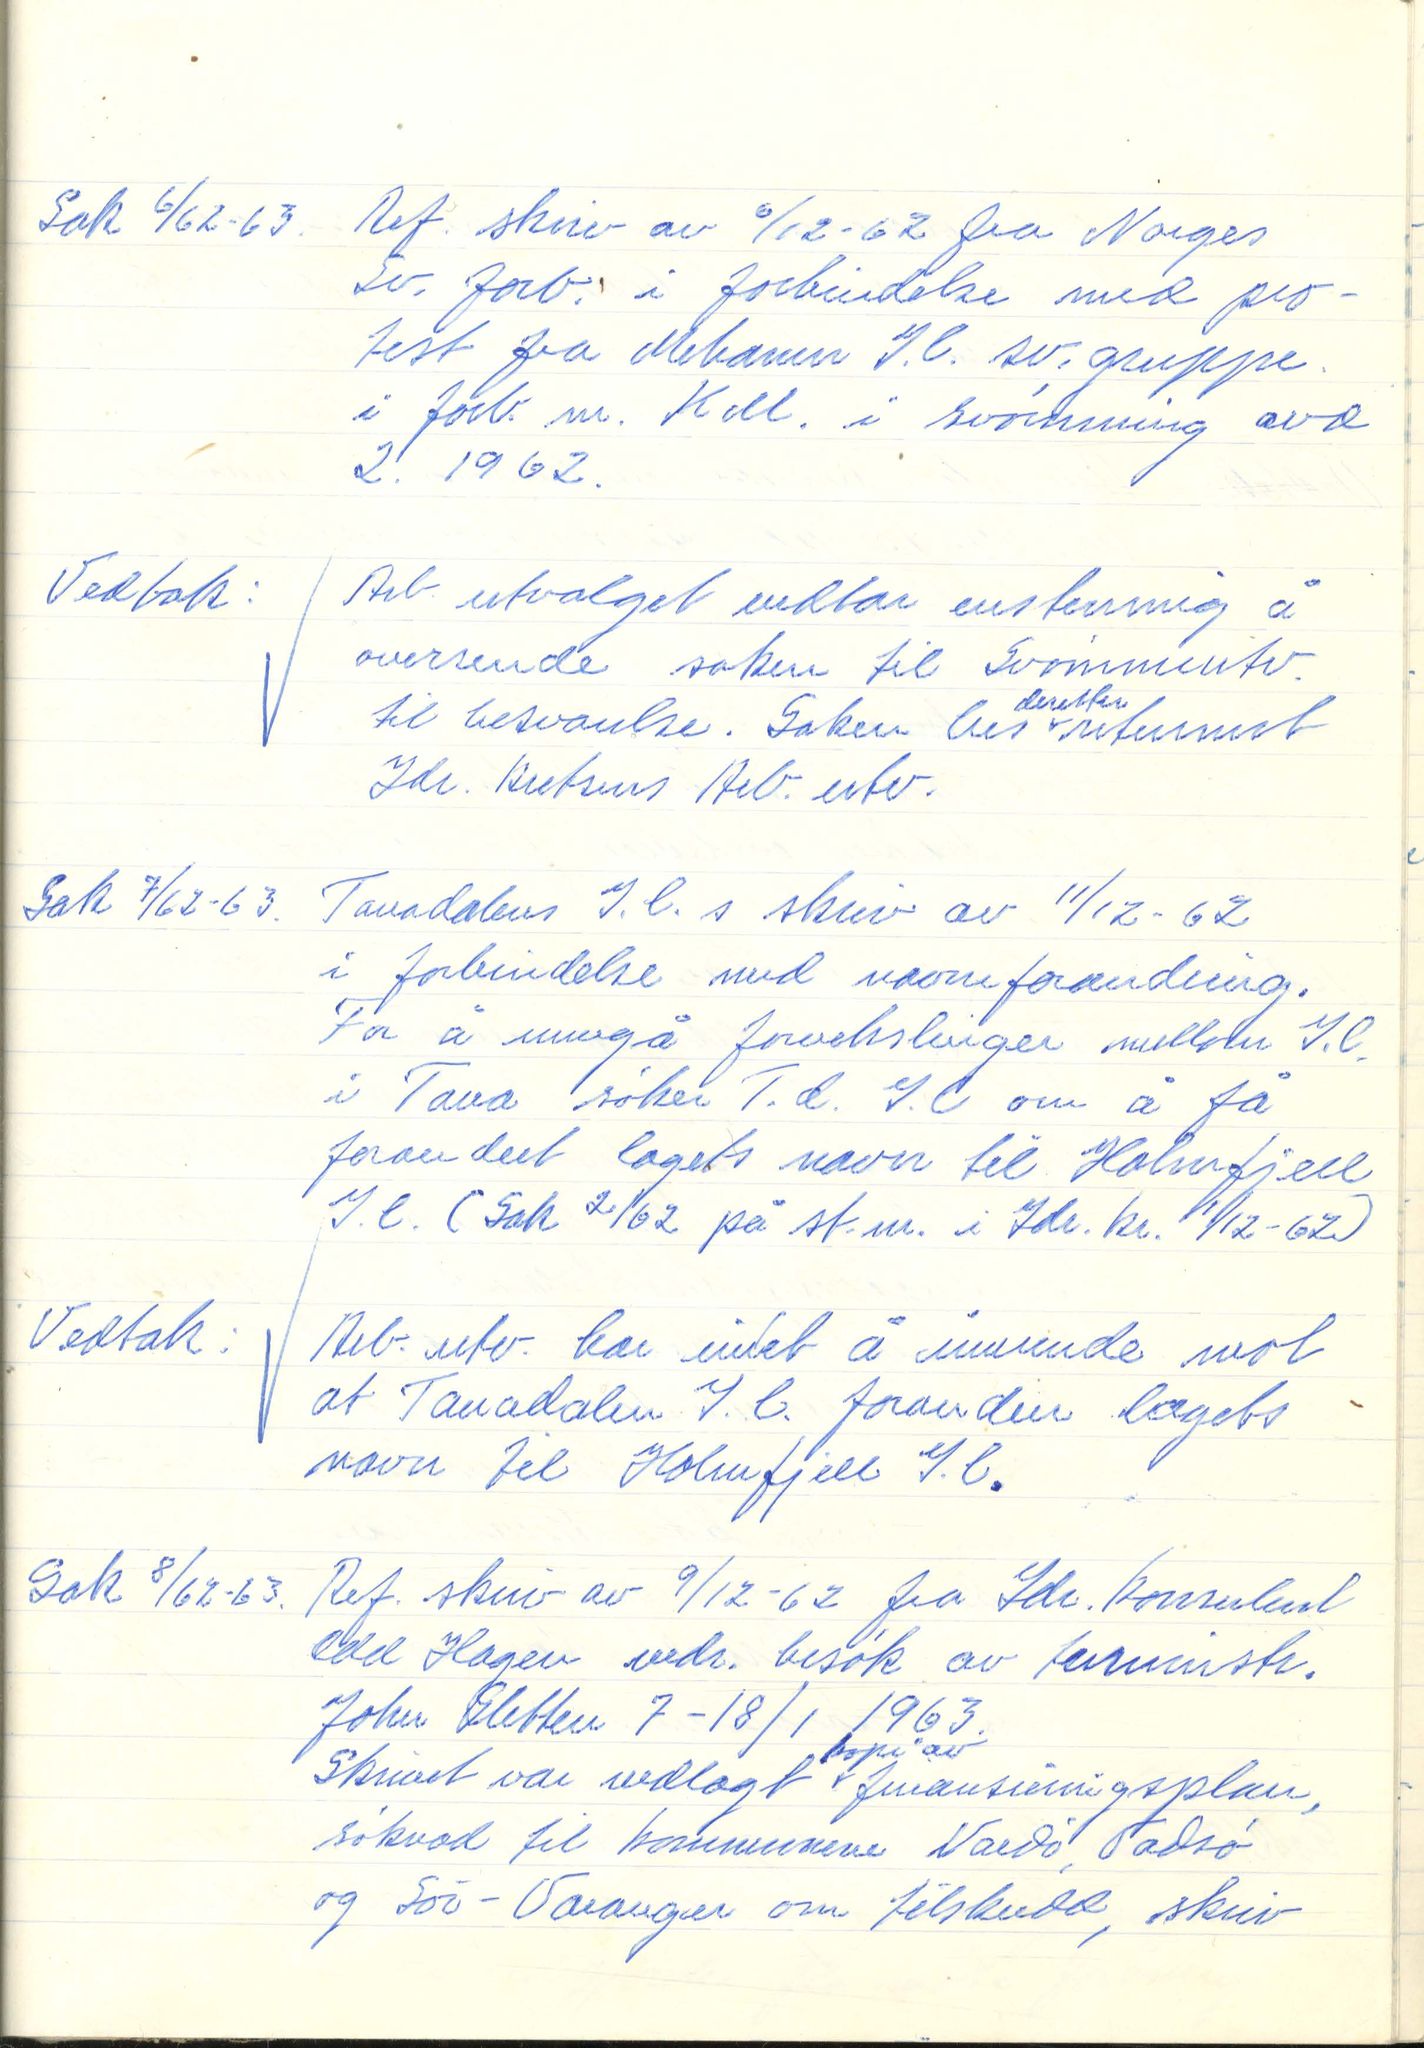 Sak 6/62-63. Ref. skriv av 6/12-62 fra Norges
Sv. forb. i forbindelse med pro-
test fra Mehamn I.l. sv. gruppe.
i forb. m. KM. i svömming avd
2. 1962.
Vedtak: Arb. utvalget vedtar enstemmig å
oversende saken til Svömmeutv.
til besvarelse. Saken bes deretter returnert
Idr. Kretsens Arb. utv.
Sak 7/62-63. Tanadalens I.l.s skriv av 11/12-62
i forbindelse med navneforandring.
For å unngå forvekslinger mellom I.l.
i Tana söker T.d. I.l om å få
forandret lagets navn til Holmfjell
I.l. (Sak 2/62 på st.m. i Idr. kr. 1/12-62)
Vedtak: Arb. utv. har intet å innvende mot
at Tanadalen I.l. forandrer lagets
navn til Holmfjell I.l.
Sak 8/62-63. Ref. skriv av 9/12-62 fra Idr. Konsulent
Odd Hagen vedr. besök av turninstr.
John Sletten 7-18/1 1963.
Skrivet var vedlagt kopi av finansieringsplan,
söknad til kommunene Vardö, Vadsö
og Sör-Varanger om tilskudd, skriv